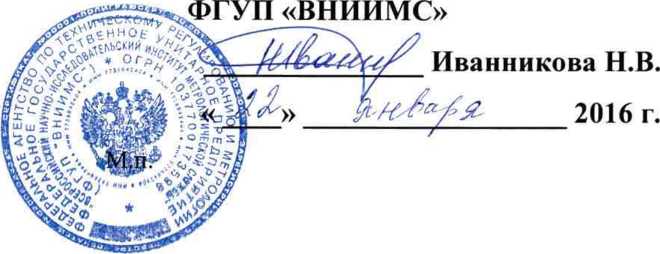 ФГУП «ВНИИМС»
Иванникова Н.В.
«22» января 2016 г.
М.п.
ФЕДЕРАЛЬНОЕ АГЕНТСТВО ПО ТЕХНИЧЕСКОМУ РЕГУЛИРОВАНИЮ И МЕТРОЛОГИИ
ФЕДЕРАЛЬНОЕ ГОСУДАРСТВЕННОЕ УНИТАРНОЕ ПРЕДПРИЯТИЕ
ВСЕРОССИЙСКИЙ НАУЧНО-ИССЛЕДОВАТЕЛЬСКИЙ ИНСТИТУТ МЕТРОЛОГИЧЕСКОЙ СЛУЖБЫ
(ФГУП «ВНИИМС») * ОГРН 1037700173598